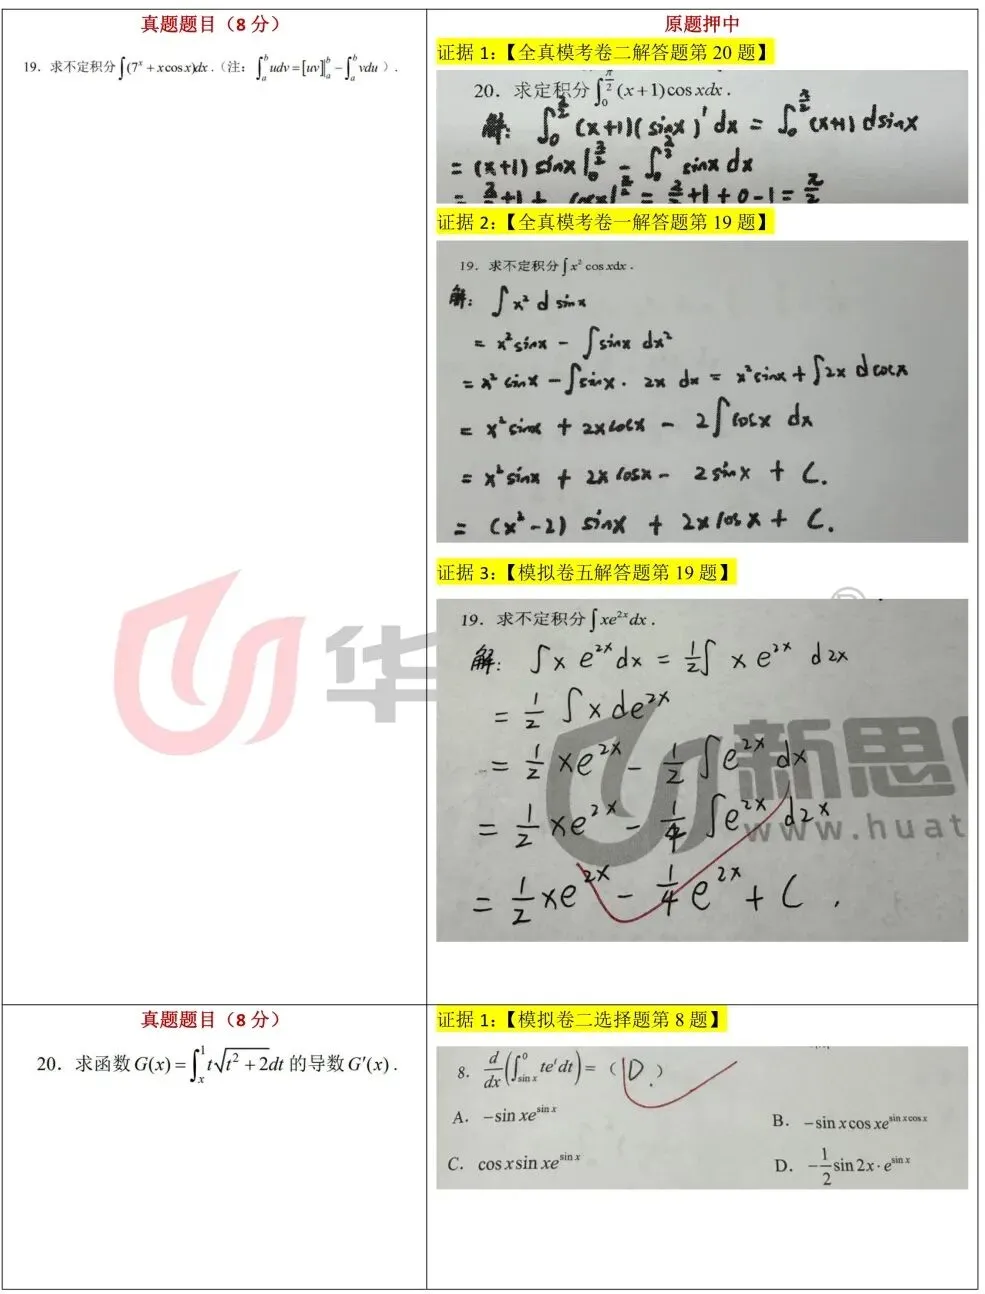 真题题目（8 分）
19．求不定积分∫(7ˣ + x cos x)dx．(注：∫ₐᵇ udv = [uv]ₐᵇ − ∫ₐᵇ vdu ）．
原题押中
证据 1：【全真模考卷二解答题第 20 题】
20．求定积分∫₀^(π/2) (x+1)cos xdx．
解：∫₀^(π/2) (x+1)(sinx)′ dx = ∫₀^(π/2) (x+1) dsinx
= (x+1) sinx |₀^(π/2) − ∫₀^(π/2) sinx dx
= π/2 +1 + cosx|₀^(π/2) = π/2 +1+0−1 = π/2
证据 2：【全真模考卷一解答题第 19 题】
19．求不定积分∫x² cos xdx．
解：∫x² d sinx
= x²sinx − ∫sinx dx²
= x² sinx − ∫sinx · 2x dx = x²sinx + ∫2x dcosx
= x²sinx + 2xcosx − 2∫cosx dx
= x²sinx + 2xcosx − 2sinx + C.
= (x²−2) sinx + 2xcosx + C.
证据 3：【模拟卷五解答题第 19 题】
19．求不定积分∫xe²ˣdx．
解：∫x e²ˣdx = ½∫ x e²ˣ d2x
= ½ ∫x de²ˣ
= ½ xe²ˣ − ½ ∫e²ˣ dx
= ½ xe²ˣ − ¼ ∫e²ˣ d2x
= ½ xe²ˣ − ¼ e²ˣ + C .
华
新思
www.huat
真题题目（8 分）
20．求函数 G(x) = ∫ₓ¹ t√(t² + 2)dt 的导数 G′(x)．
证据 1：【模拟卷二选择题第 8 题】
8．d/dx(∫_(sin x)^0 teᵗdt) =（ D. ）
A．−sin xe^(sin x)
B．−sin x cos xe^(sin x cos x)
C．cos x sin xe^(sin x)
D．−½ sin 2x · e^(sin x)